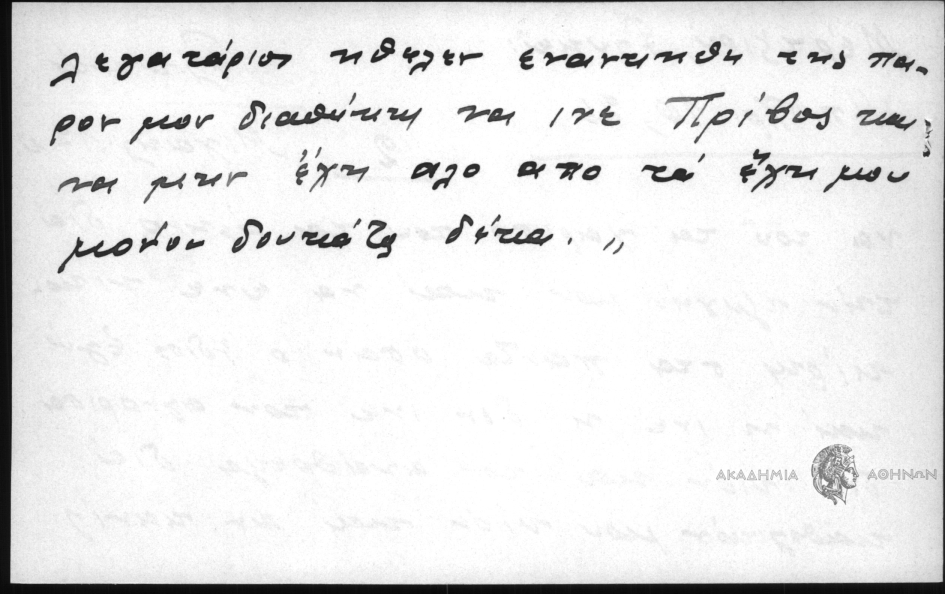 λεγατάριοι ηθελεν εναντιηθη της πα-
ρον μου διαθήκη να ινε Πρίβος και
να μην έχη αλο απο τά έχη μου
μονον δουκάτα δέκα. „
ΑΚΑΔΗΜΙΑ ΑΘΗΝΩΝ